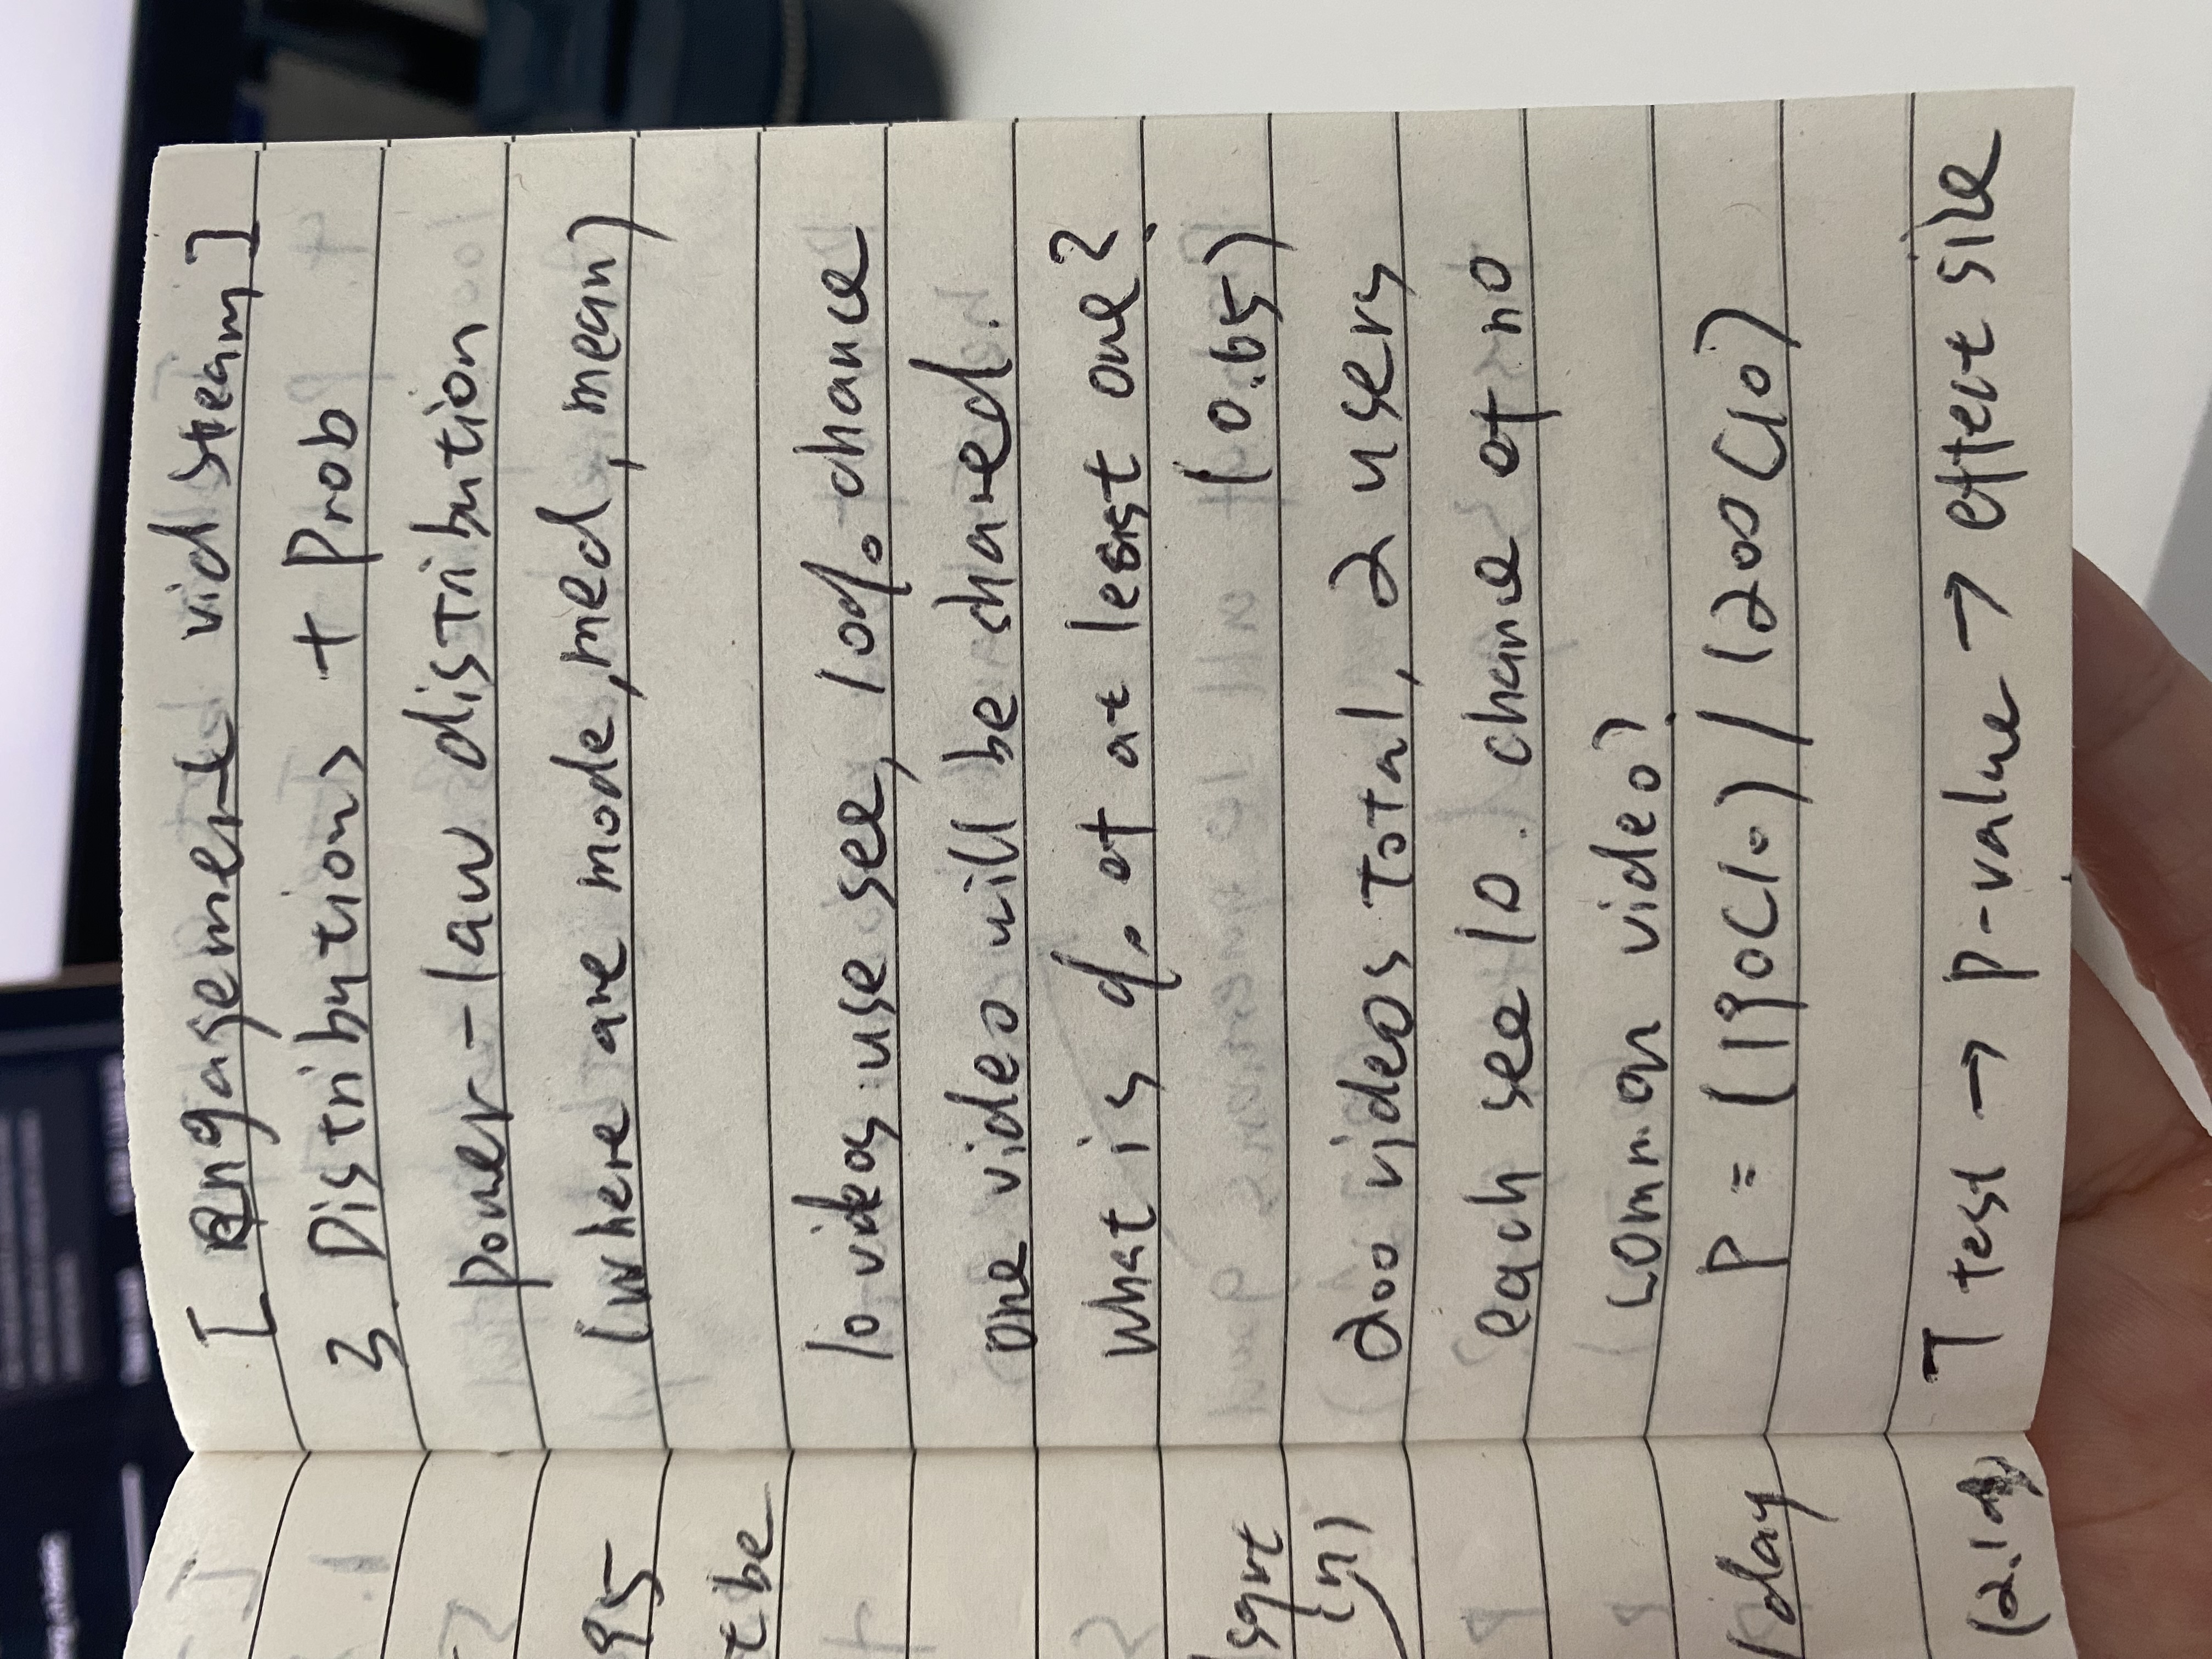 [ engagement vid steam ]
3. Distributions + Prob
power-law distribution
(where are mode, med, mean)
10 videos use see, 10% chance
one video will be shared.
what is % of at least one?
(0.65)
200 videos total, 2 users
each see 10. chance of no
common video?
P = (190C10) / (200C10)
T test → p-value → effect size
95
t be
sqrt
(n)
/day